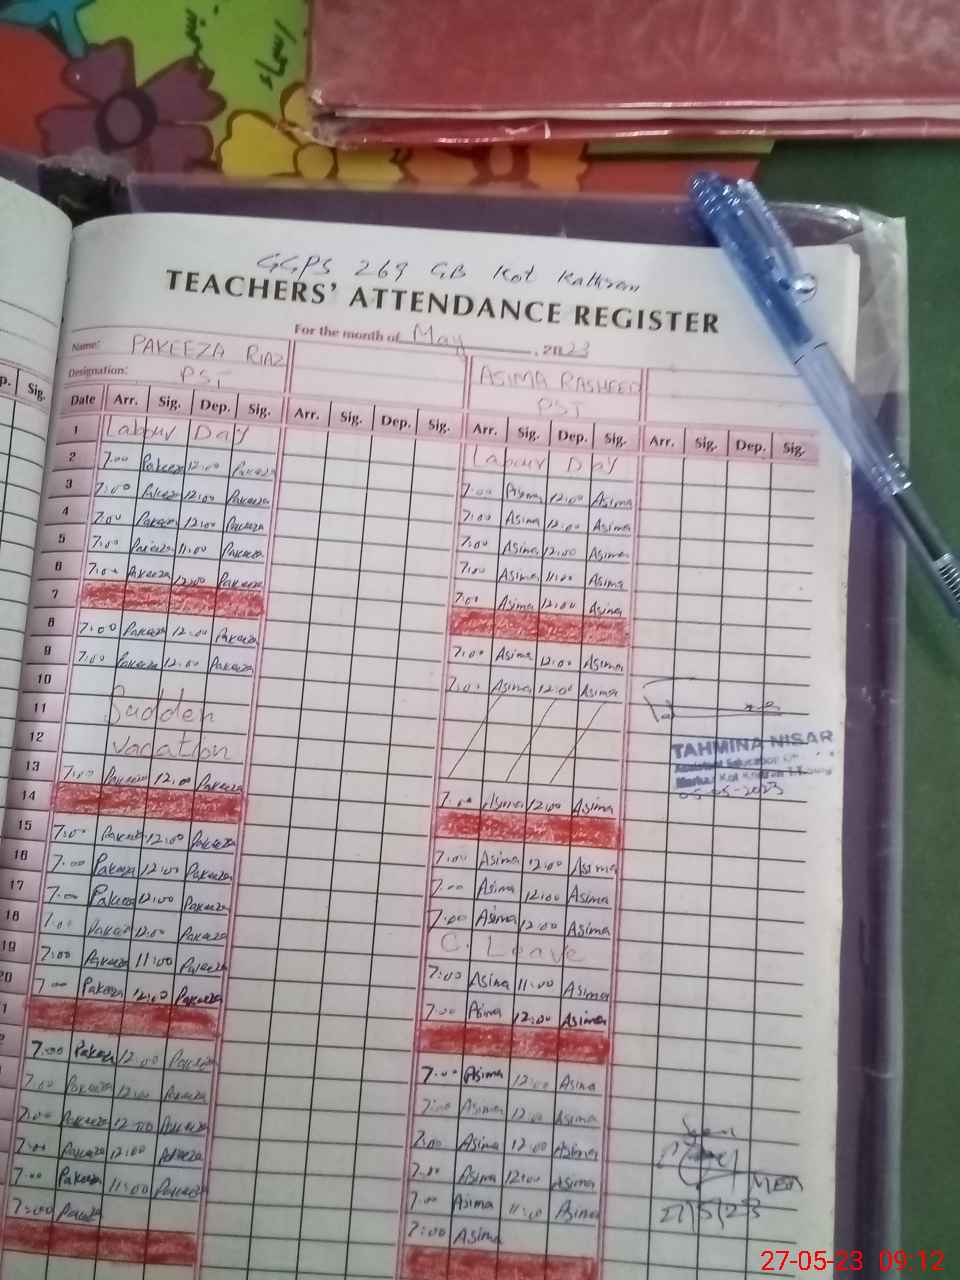 اسماء
GGPS 269 GB Kot Kathran
TEACHERS' ATTENDANCE REGISTER
For the month of May, 2023
Name: PAKEEZA RIAZ
Designation: PST
ASIMA RASHEED
PST
p. Sig.
Date Arr. Sig. Dep. Sig. Arr. Sig. Dep. Sig. Arr. Sig. Dep. Sig. Arr. Sig. Dep. Sig.
1 Labour Day Labour Day
2 7:00 Pakeeza 12:00 Pakeeza 7:00 Asima 12:00 Asima
3 7:00 Pakeeza 12:00 Pakeeza 7:00 Asima 12:00 Asima
4 7:00 Pakeeza 12:00 Pakeeza 7:00 Asima 12:00 Asima
5 7:00 Pakeeza 11:00 Pakeeza 7:00 Asima 11:00 Asima
6 7:00 Pakeeza 12:00 Pakeeza 7:00 Asima 12:00 Asima
7
8 7:00 Pakeeza 12:00 Pakeeza 7:00 Asima 12:00 Asima
9 7:00 Pakeeza 12:00 Pakeeza 7:00 Asima 12:00 Asima
10
11 Sudden
12 vacation
13 7:00 Pakeeza 12:00 Pakeeza 7:00 Asima 12:00 Asima
14
15 7:00 Pakeeza 12:00 Pakeeza 7:00 Asima 12:00 Asima
16 7:00 Pakeeza 12:00 Pakeeza 7:00 Asima 12:00 Asima
17 7:00 Pakeeza 12:00 Pakeeza 7:00 Asima 12:00 Asima
18 7:00 Pakeeza 12:00 Pakeeza C. Leave
19 7:00 Pakeeza 11:00 Pakeeza 7:00 Asima 11:00 Asima
20 7:00 Pakeeza 12:00 Pakeeza 7:00 Asima 12:00 Asima
1
2 7:00 Pakeeza 12:00 Pakeeza 7:00 Asima 12:00 Asima
7:00 Pakeeza 12:00 Pakeeza 7:00 Asima 12:00 Asima
7:00 Pakeeza 12:00 Pakeeza 7:00 Asima 12:00 Asima
7:00 Pakeeza 12:00 Pakeeza 7:00 Asima 12:00 Asima
7:00 Pakeeza 11:00 Pakeeza 7:00 Asima 11:00 Asima
7:00 Pakeeza 7:00 Asima
TAHMINA NISAR
Assistant Education
Markaz Kot Kathran
05-05-2023
Seen
MEA
27/5/23
27-05-23 09:12